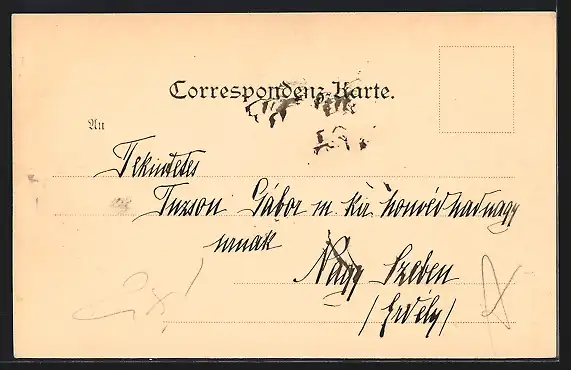 Correspondenz-Karte.
An
Tekintetes
Tuzson Gábor m. kir honvéd hadnagy
urnak
Nagy Szeben
/Erdély/